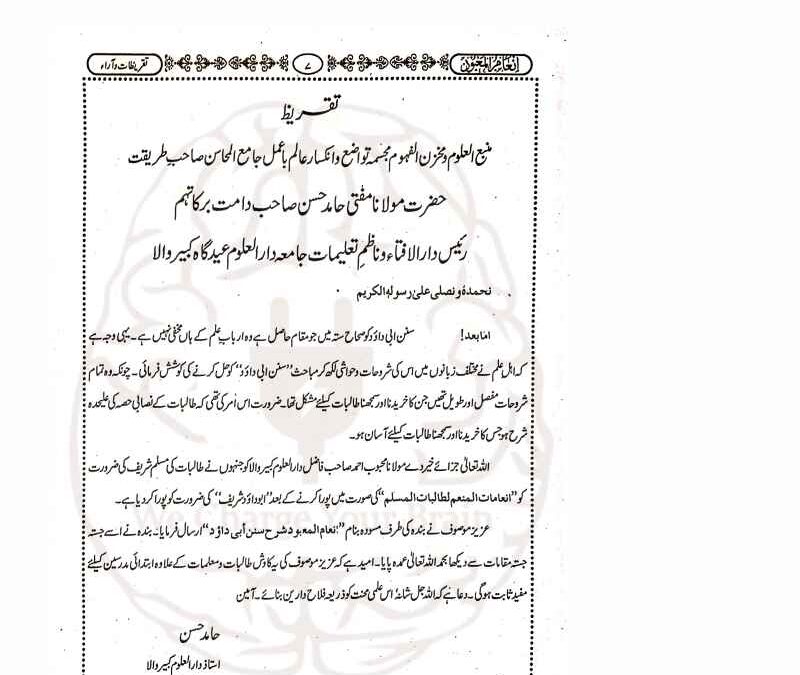 انعام المعبود
۷
تقریظات و آراء
تقریظ
منبع العلوم و مخزن الفہوم مجسمہ تواضع و انکسار عالم باعمل جامع المحاسن صاحب طریقت
حضرت مولانا مفتی حامد حسن صاحب دامت برکاتہم
رئیس دارالافتاء و ناظم تعلیمات جامعہ دارالعلوم عیدگاہ کبیر والا
نحمدہٗ و نصلی علیٰ رسولہٖ الکریم
اما بعد! سنن ابی داؤد کو صحاح ستہ میں جو مقام حاصل ہے وہ ارباب علم کے ہاں مخفی نہیں ہے۔ یہی وجہ ہے
کہ اہل علم نے مختلف زبانوں میں اس کی شروحات و حواشی لکھ کر مباحث "سنن ابی داؤد" کو حل کرنے کی کوشش فرمائی۔ چونکہ وہ تمام
شروحات مفصل اور طویل تھیں جن کا خریدنا اور سمجھنا طالبات کیلئے مشکل تھا۔ ضرورت اس اَمر کی تھی کہ طالبات کے نصابی حصہ کی علیحدہ
شرح ہو جس کا خریدنا اور سمجھنا طالبات کیلئے آسان ہو۔
اللہ تعالیٰ جزائے خیر دے مولانا محبوب احمد صاحب فاضل دارالعلوم کبیر والا کو جنہوں نے طالبات کی مسلم شریف کی ضرورت
کو "انعامات المنعم لطالبات المسلم" کی صورت میں پورا کرنے کے بعد "ابوداؤد شریف" کی ضرورت کو پورا کر دیا ہے۔
عزیز موصوف نے بندہ کی طرف مسودہ بنام "انعام المعبود شرح سنن أبی داؤد" ارسال فرمایا۔ بندہ نے اسے جستہ
جستہ مقامات سے دیکھا بحمد اللہ تعالیٰ عمدہ پایا۔ امید ہے کہ عزیز موصوف کی یہ کاوش طالبات و معلمات کے علاوہ ابتدائی مدرسین کیلئے
مفید ثابت ہوگی۔ دعا ہے کہ اللہ جل شانہٗ اس علمی محنت کو ذریعہ فلاح دارین بنائے۔ آمین
حامد حسن
استاذ دارالعلوم کبیر والا
We Charge Your Brain